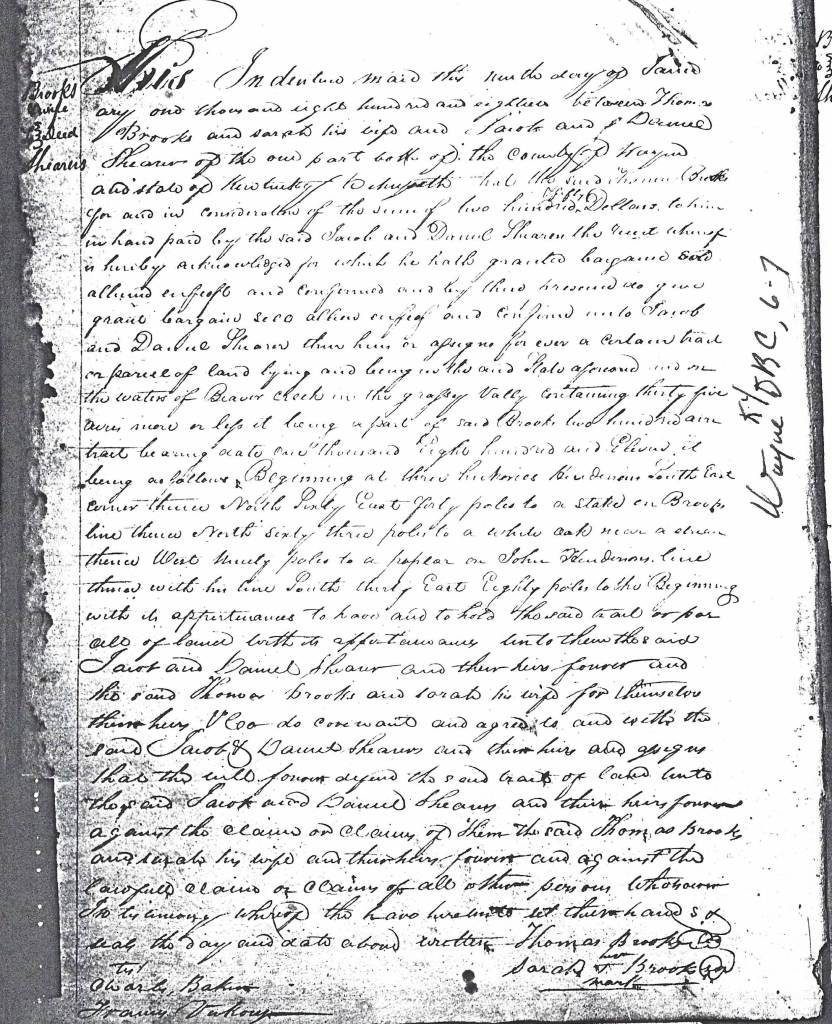 Brooks
& wife
to } Deed
Shearers
This Indenture maid this ninth day of Janu
ary one thousand eight hundred and eighteen between Thoms
Brooks and sarah his wife and Jacob and Daniel
Shearer of the one part both of the County of Wayne
and state of Kentucky that the said Thomas Brooks
for and in consideration of the sum of two hundred fifty Dollars to him
in hand paid by the said Jacob and Daniel Shearer the whereof
is hereby acknowledged for which he hath granted bargane sold
and confirmed and by these presents do give
grant bargain sell and confirm unto Jacob
and Daniel Shearer their heirs or assigns for ever a certain tract
or parcel of land lying and being in the and State aforesaid and on
the waters of Beaver Creek in the grassy Valley containing thirty five
acres more or less it being a part of said Brooks two hundred acre
tract bearing date one thousand Eight hundred and Eleven it
being as follows Beginning at three hickories Hendersons South East
corner thence North Sixty East forty poles to a stake on Brooks
line thence North sixty three poles to a white oak near a
thence West ninety poles to a poplar on John Hendersons line
thence with his line South thirty East Eighty poles to the Beginning
with its appurtenances to have and to hold the said tract or par
cell of land with its appurtanances unto them the said
Jacob and Daniel Shearer and their heirs forever and
the said Thomas Brooks and sarah his wife for themselves
their heirs do covenant and agree to and with the
said Jacob & Daniel Shearers and their heirs and assigns
that the will forever defend the said tract of land unto
the said Jacob and Daniel Shearers and their heirs forever
against the claim or claims of them the said Thomas Brooks
and sarah his wife and their heirs forever and against the
lawfull claim or claims of all other persons whosoever
In testimony whereof the have hereunto set their hands &
seals the day and date above written Thomas Brooks
her
Sarah Brooks
mark
Charles Baker
Francis
Wayne KY DBC, 6-7